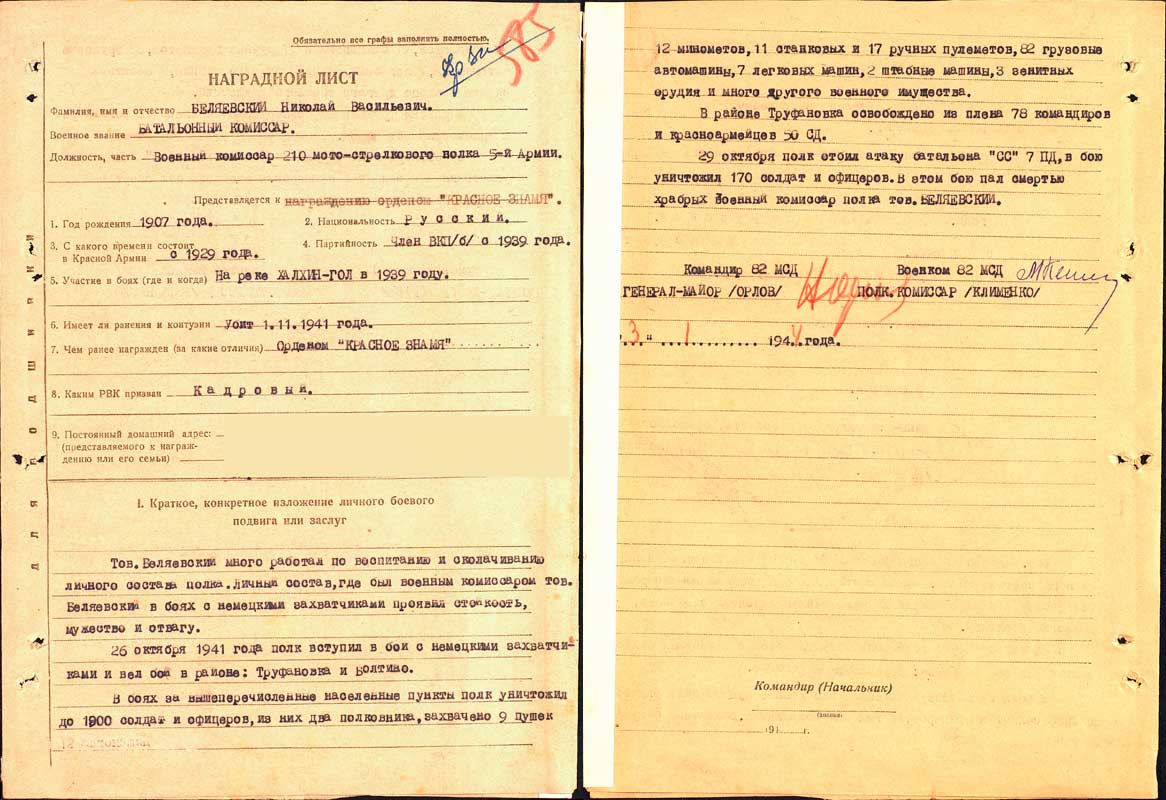 Обязательно все графы заполнять полностью.
585
НАГРАДНОЙ ЛИСТ
Фамилия, имя и отчество БЕЛЯЕВСКИЙ Николай Васильевич.
Военное звание БАТАЛЬОННЫЙ КОМИССАР.
Должность, часть Военный комиссар 210 мото-стрелкового полка 5-й Армии.
Представляется к награждению орденом "КРАСНОЕ ЗНАМЯ".
1. Год рождения 1907 года. 2. Национальность Русский.
3. С какого времени состоит
в Красной Армии с 1929 года. 4. Партийность Член ВКП/б/ с 1939 года.
5. Участие в боях (где и когда) На реке ХАЛХИН-ГОЛ в 1939 году.
6. Имеет ли ранения и контузии Убит 1.11.1941 года.
7. Чем ранее награжден (за какие отличия) Орденом "КРАСНОЕ ЗНАМЯ"
8. Каким РВК призван Кадровый.
9. Постоянный домашний адрес:
(представляемого к награж-
дению или его семьи)
I. Краткое, конкретное изложение личного боевого
подвига или заслуг
Тов. Беляевский много работал по воспитанию и сколачиванию
личного состава полка. Личный состав, где был военным комиссаром тов.
Беляевский в боях с немецкими захватчиками проявил стойкость,
мужество и отвагу.
26 октября 1941 года полк вступил в бой с немецкими захватчи-
ками и вел бой в районе: Труфановка и Болтино.
В боях за вышеперечисленные населенные пункты полк уничтожил
до 1900 солдат и офицеров, из них два полковника, захвачено 9 пушек
для подшивки
12 минометов, 11 станковых и 17 ручных пулеметов, 82 грузовые
автомашины, 7 легковых машин, 2 штабные машины, 3 зенитных
орудия и много другого военного имущества.
В районе Труфановка освобождено из плена 78 командиров
и красноармейцев 50 СД.
29 октября полк отбил атаку батальона "СС" 7 ПД, в бою
уничтожил 170 солдат и офицеров. В этом бою пал смертью
храбрых Военный комиссар полка тов. БЕЛЯЕВСКИЙ.
Командир 82 МСД Военком 82 МСД
ГЕНЕРАЛ-МАЙОР /ОРЛОВ/ ПОЛК. КОМИССАР /КЛИМЕНКО/
"3" 1 194 года.
Командир (Начальник)
(подпись)
194 г.